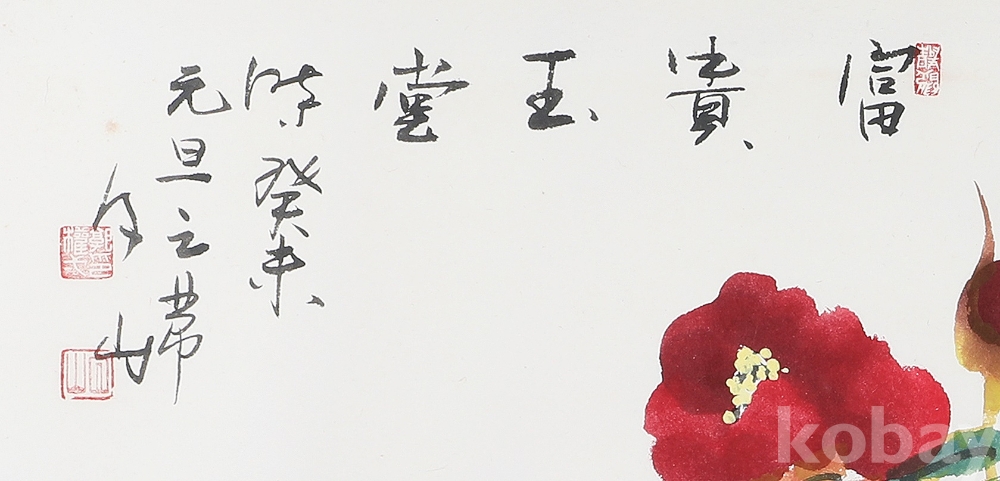 富貴玉堂
時癸未
元旦之
丘山
kobay